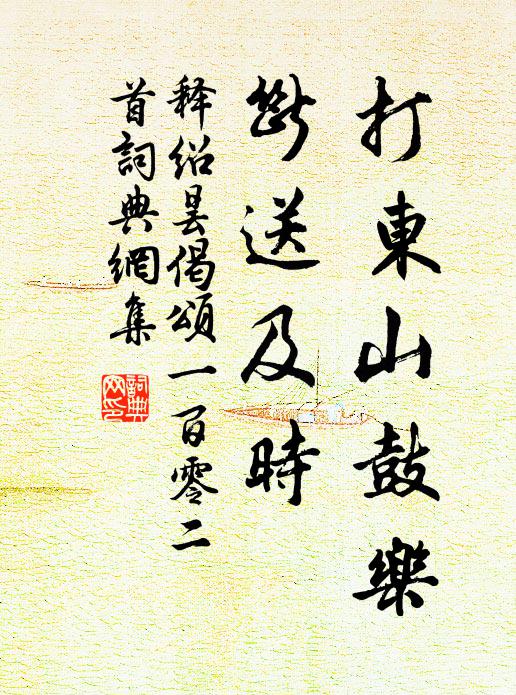 打東山鼓樂
斷送及時
释紹曇偈頌一百零二
首詞典網集
詞典
网印